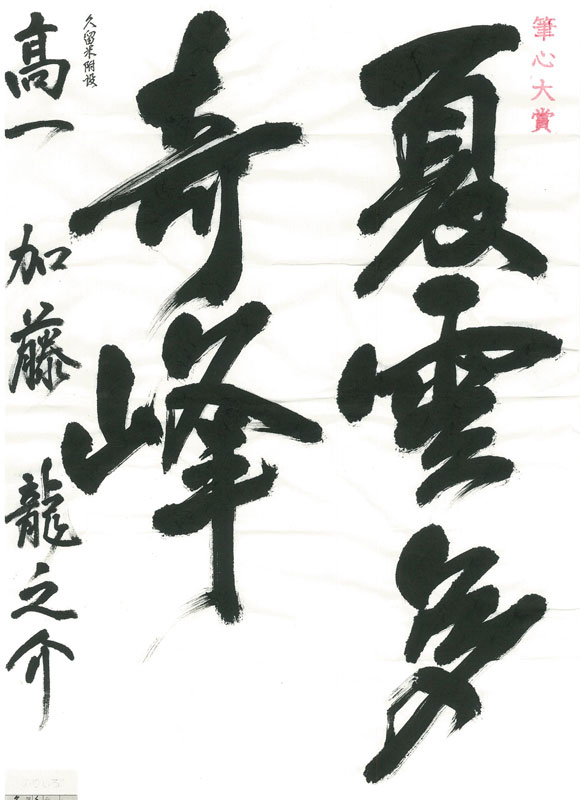 筆心大賞
夏雲多
奇峰
久留米附設
高一 加藤龍之介